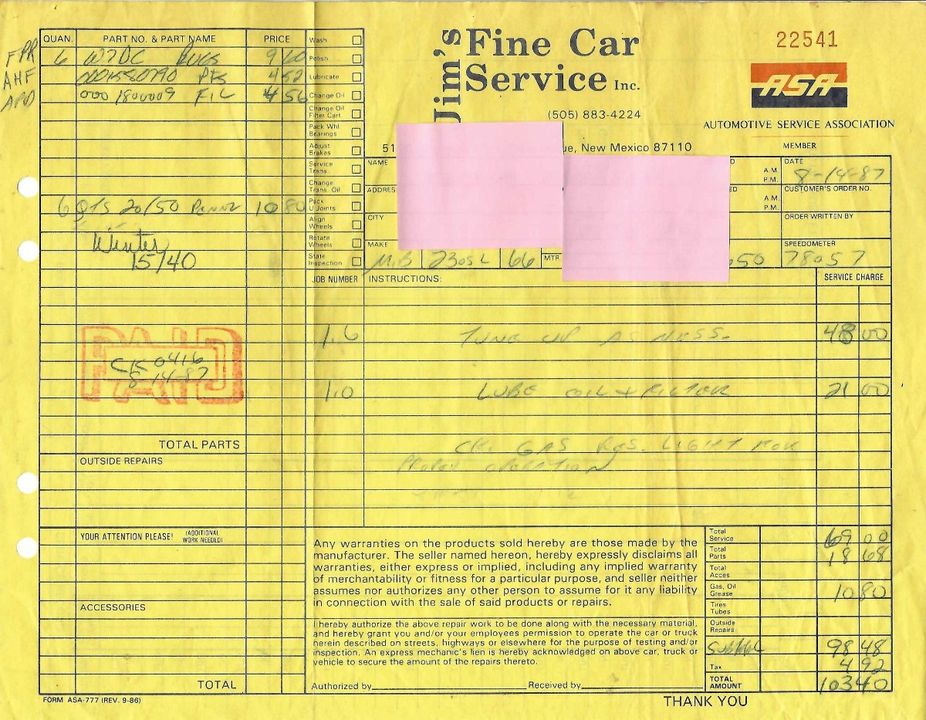 Jim's Fine Car Service Inc.
(505) 883-4224
51
ue, New Mexico 87110
22541
ASA
AUTOMOTIVE SERVICE ASSOCIATION
MEMBER
QUAN. PART NO. & PART NAME PRICE
FPR 6 W7DC PLUGS 9 60
AHF 0011580790 PTS 4 52
APD 000 1800009 FIL 4 56
6 QTS 20/50 Pennz 10 80
Winter
15/40
PAID
CK 0416
8-14-87
TOTAL PARTS
OUTSIDE REPAIRS
YOUR ATTENTION PLEASE! (ADDITIONAL WORK NEEDED)
ACCESSORIES
TOTAL
Wash
Polish
Lubricate
Change Oil
Change Oil Filter Cart.
Pack Whl Bearings
Adjust Brakes
Service Trans.
Change Trans. Oil
Pack U Joints
Align Wheels
Rotate Wheels
State Inspection
NAME
ADDRES
CITY
MAKE
MB 230SL 66 MTR
A.M.
P.M.
A.M.
P.M.
DATE
8-14-87
CUSTOMER'S ORDER NO.
ORDER WRITTEN BY
SPEEDOMETER
78057
JOB NUMBER INSTRUCTIONS: SERVICE CHARGE
1.6 TUNE UP AS NESS. 48 00
1.0 LUBE OIL + FILTER 21 00
CK. GAS RES. LIGHT FOR
PROPER OPERATION
Any warranties on the products sold hereby are those made by the
manufacturer. The seller named hereon, hereby expressly disclaims all
warranties, either express or implied, including any implied warranty
of merchantability or fitness for a particular purpose, and seller neither
assumes nor authorizes any other person to assume for it any liability
in connection with the sale of said products or repairs.
I hereby authorize the above repair work to be done along with the necessary material,
and hereby grant you and/or your employees permission to operate the car or truck
herein described on streets, highways or elsewhere for the purpose of testing and/or
inspection. An express mechanic's lien is hereby acknowledged on above car, truck or
vehicle to secure the amount of the repairs thereto.
Authorized by Received by
Total Service 69 00
Total Parts 18 68
Total Acces.
Gas, Oil Grease 10 80
Tires Tubes
Outside Repairs
Subtotal 98 48
Tax 4 92
TOTAL AMOUNT 103 40
FORM ASA-777 (REV. 9-86)
THANK YOU